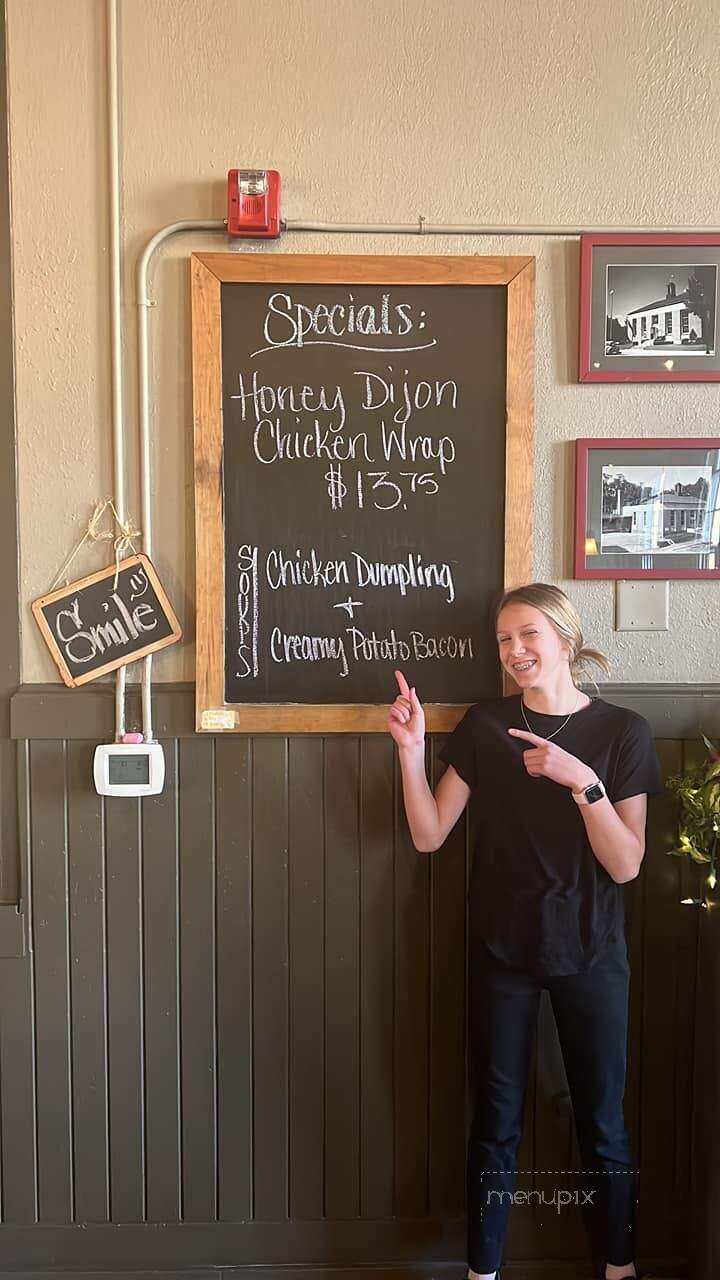 Specials:
Honey Dijon
Chicken Wrap
$13.75
SOUPS
Chicken Dumpling
+
Creamy Potato Bacon
Smile
menupix